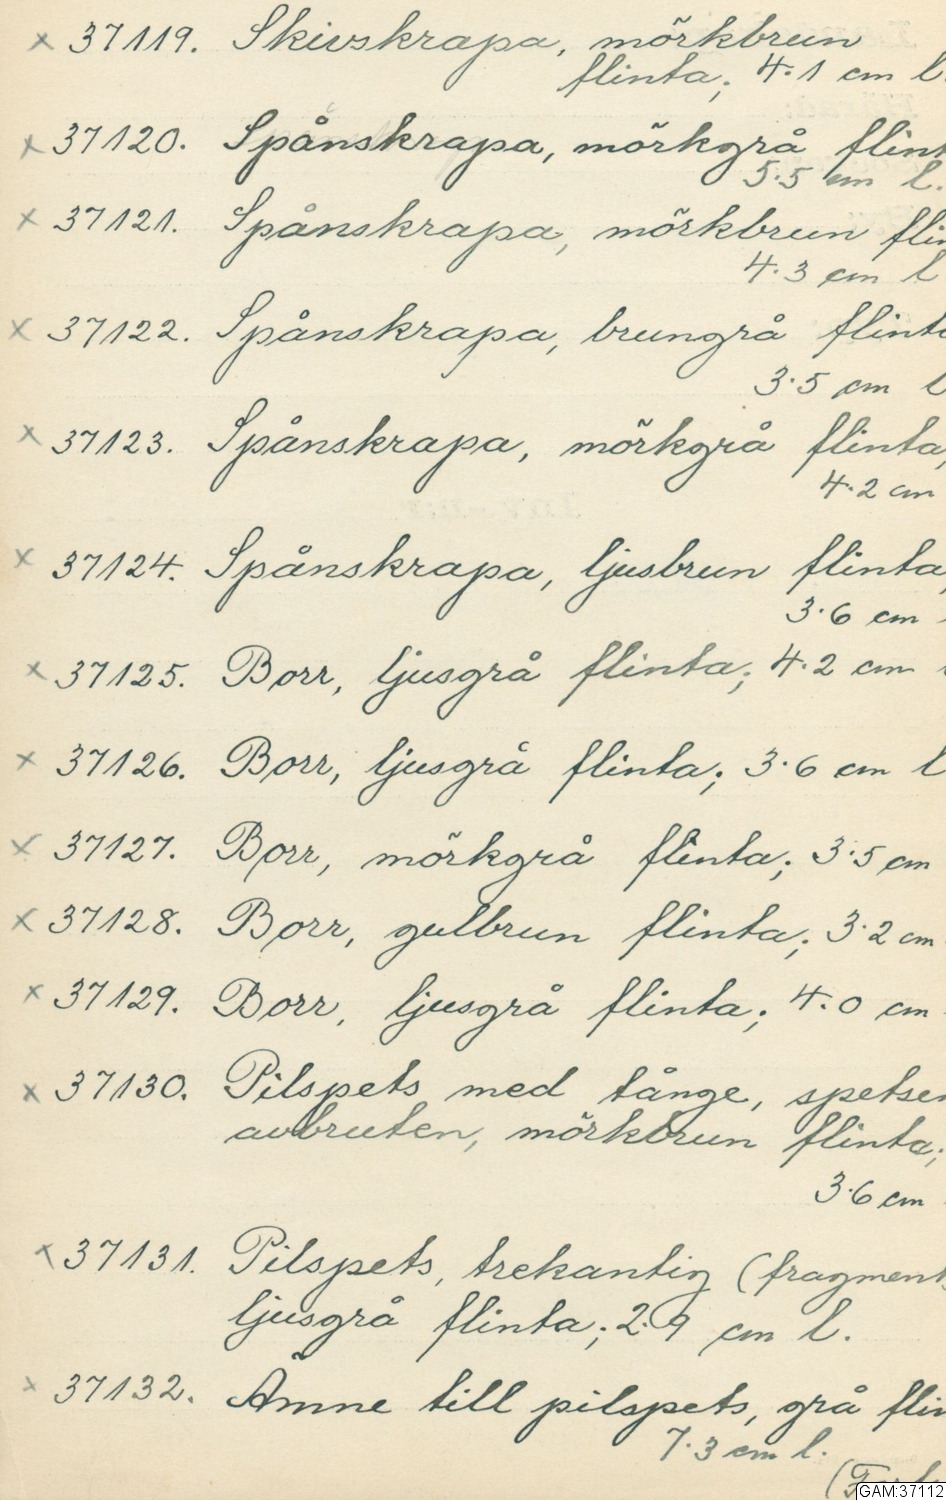 × 37119. Skivskrapa, mörkbrun
flinta; 4.1 cm l.
× 37120. Spånskrapa, mörkgrå flint
5.5 cm l.
× 37121. Spånskrapa, mörkbrun flin
4.3 cm l
× 37122. Spånskrapa, brungrå flinta
3.5 cm l
× 37123. Spånskrapa, mörkgrå flinta,
4.2 cm
× 37124. Spånskrapa, ljusbrun flinta,
3.6 cm
× 37125. Borr, ljusgrå flinta; 4.2 cm
× 37126. Borr, ljusgrå flinta; 3.6 cm l
× 37127. Borr, mörkgrå flinta; 3.5 cm
× 37128. Borr, gulbrun flinta; 3.2 cm
× 37129. Borr, ljusgrå flinta; 4.0 cm
× 37130. Pilspets med tånge, spetsen
avbruten, mörkbrun flinta;
3.6 cm
× 37131. Pilspets, trekantig (fragment
ljusgrå flinta; 2.9 cm l.
× 37132. Ämne till pilspets, grå flin
7.3 cm l.
GAM:37112